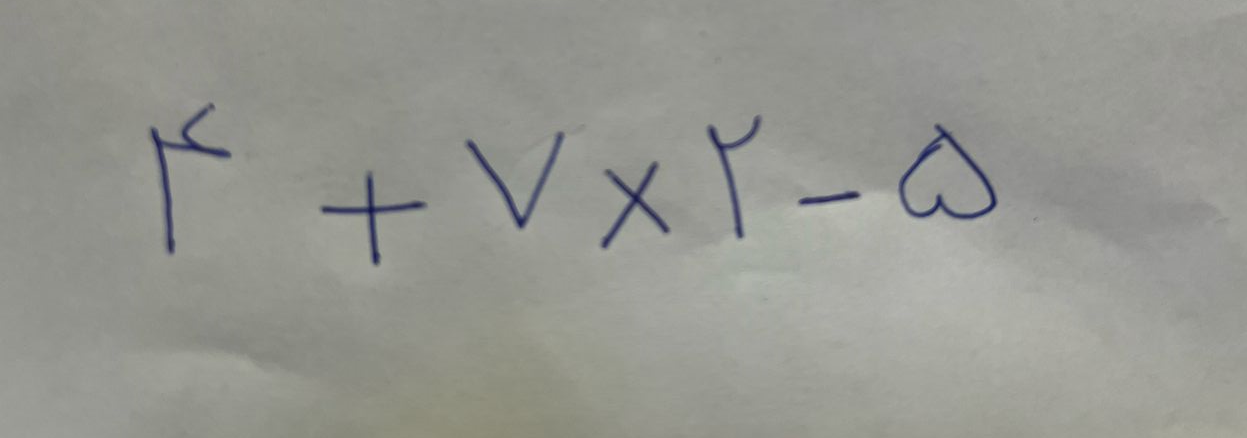 ۴ + ۷ × ۲ - ۵